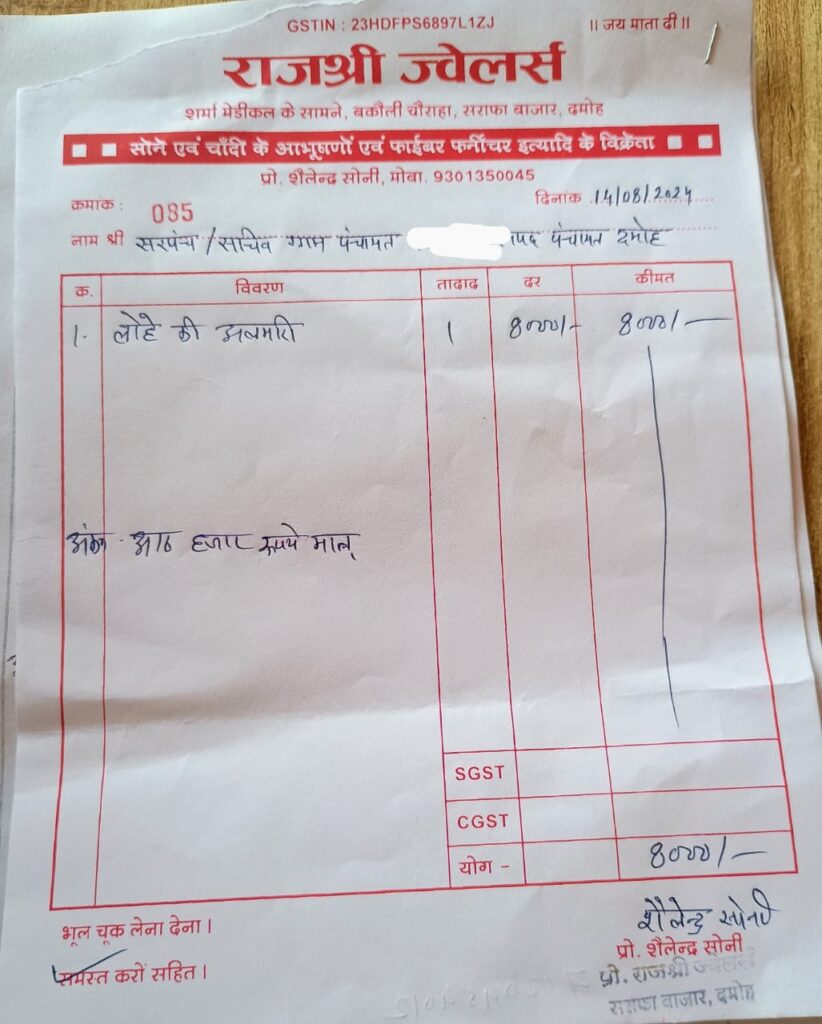 GSTIN : 23HDFPS6897L1ZJ
॥ जय माता दी ॥
राजश्री ज्वेलर्स
शर्मा मेडीकल के सामने, बकौली चौराहा, सराफा बाजार, दमोह
सोने एवं चाँदी के आभूषणों एवं फाईबर फर्नीचर इत्यादि के विक्रेता
प्रो. शैलेन्द्र सोनी, मोबा. 9301350045
क्रमांक : 085
दिनांक 14/08/2024
नाम श्री सरपंच/सचिव ग्राम पंचायत पंचायत दमोह
क्र. विवरण तादाद दर कीमत
1. लोहे की अलमारी 1 8000/- 8000/-
आठ हजार रूपये मात्र
SGST
CGST
योग - 8000/-
भूल चूक लेना देना।
समस्त करों सहित।
शैलेन्द्र सोनी
प्रो. शैलेन्द्र सोनी
प्रो. राजश्री ज्वेलर्स
सराफा बाजार, दमोह